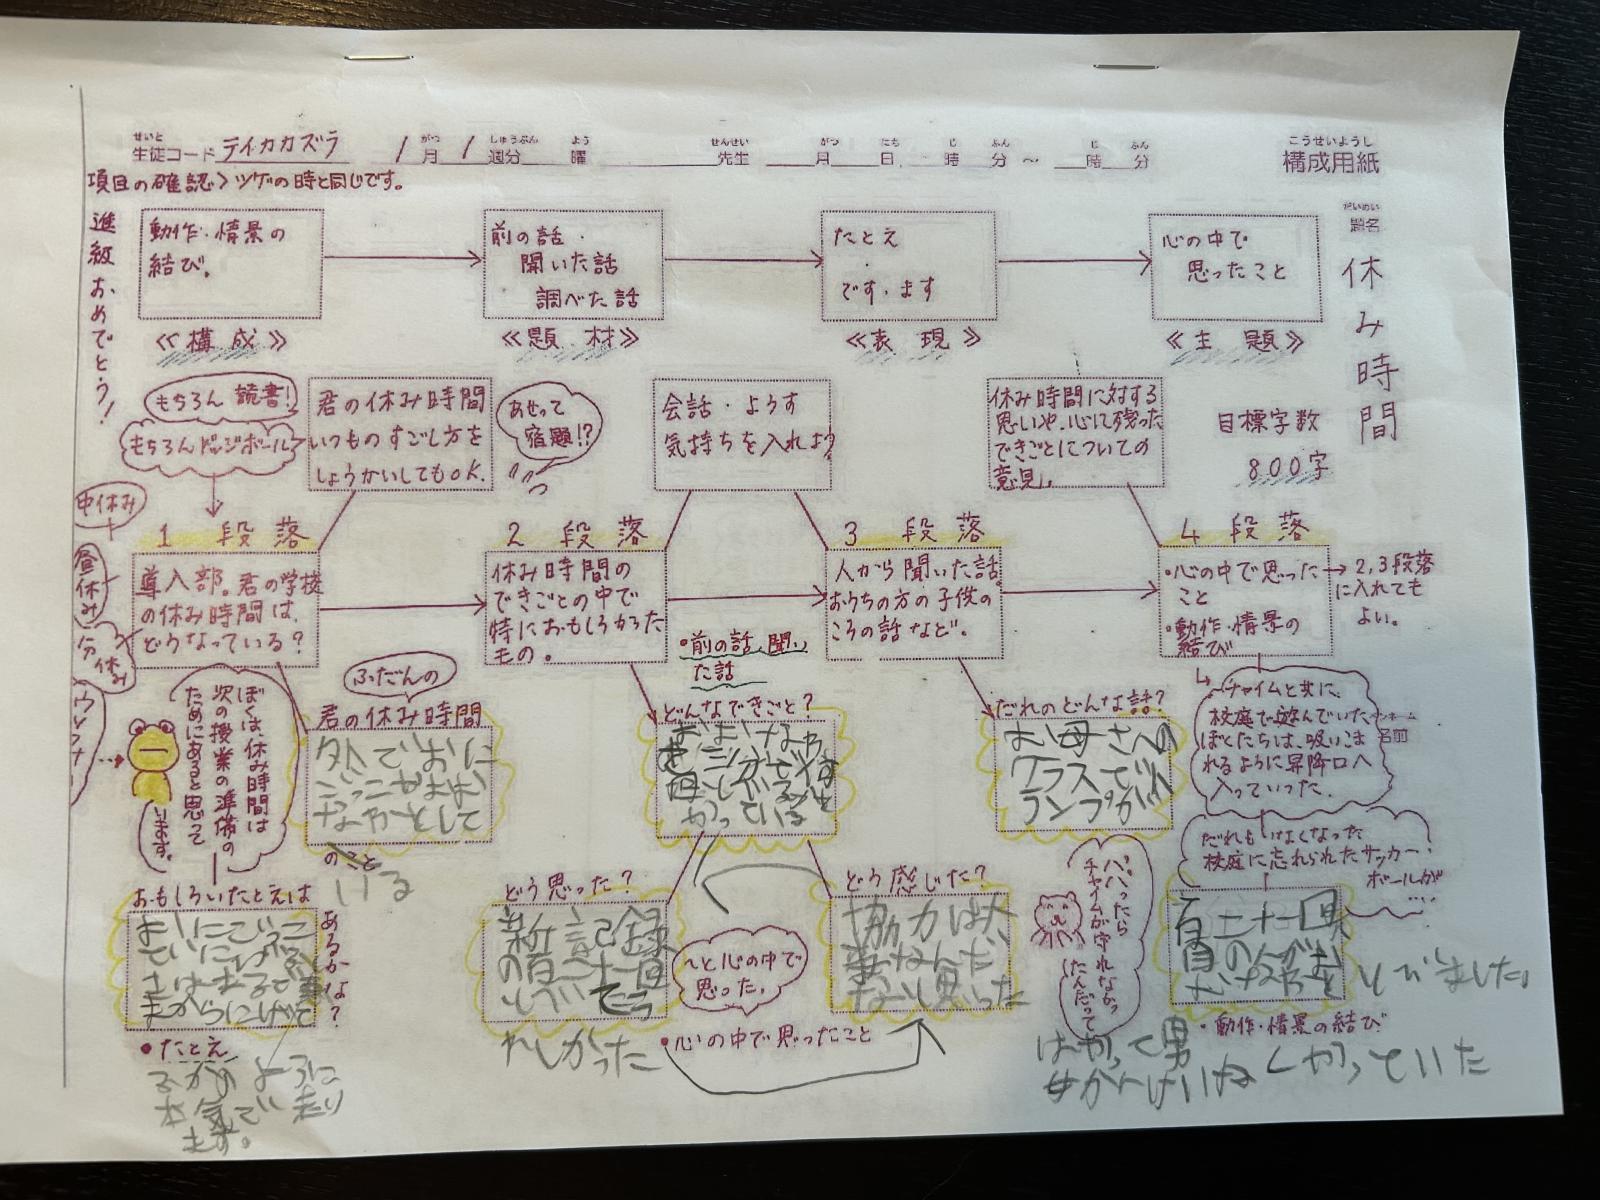 せいと
生徒コード テイカカズラ
1 月 1 週分 曜
がつ しゅうぶん よう
せんせい
先生
がつ にち じ ふん じ ふん
月 日 時 分 ～ 時 分
こうせいようし
構成用紙
項目の確認＞ツゲの時と同じです。
進級おめでとう！
だいめい
題名
休み時間
目標字数
800字
動作・情景の
結び。
≪構成≫
前の話・
聞いた話
調べた話
≪題材≫
たとえ
・
です・ます
≪表現≫
心の中で
思ったこと
≪主題≫
もちろん 読書！
もちろんドッジボール
君の休み時間
いつものすごし方を
しょうかいしてもOK.
あせって
宿題!?
会話・ようす
気持ちを入れよう
休み時間に対する
思いや、心に残った
できごとについての
意見。
中休み
昼休み
分休み
1 段落
導入部。君の学校
の休み時間は、
どうなっている？
2 段落
休み時間の
できごとの中で
特におもしろかった
もの。
3 段落
人から聞いた話。
おうちの方の子供の
ころの話など。
4 段落
・心の中で思った
こと
・動作・情景の
結び
→2,3段落
に入れても
よい。
ぼくは、休み時間は
次の授業の準備の
ためにあると思って
います。
ふだんの
君の休み時間
外でおに
ごっこやおお
なわとして
のこと
いる
・前の話、聞い
た話
どんなできごと？
だれのどんな話？
お母さんの
クラスで
チャイムと共に、
校庭で遊んでいた
ぼくたちは、吸いこま
れるように昇降口へ
入っていった。
名前
だれもいなくなった
校庭に忘れられたサッカー
ボールが
……
おもしろいたとえは
あるかな？
・たとえ
ように
本気で 走り
ます。
どう思った？
新記録
の百二十一回
れしかった
～と心の中で
思った。
・心の中で思ったこと
どう感じた？
協力は大
事なんだ
な 思った
パパったら
チャイムが守れなか
ったんだって
百二十一回
とびました。
・動作・情景の結び
くやっていた